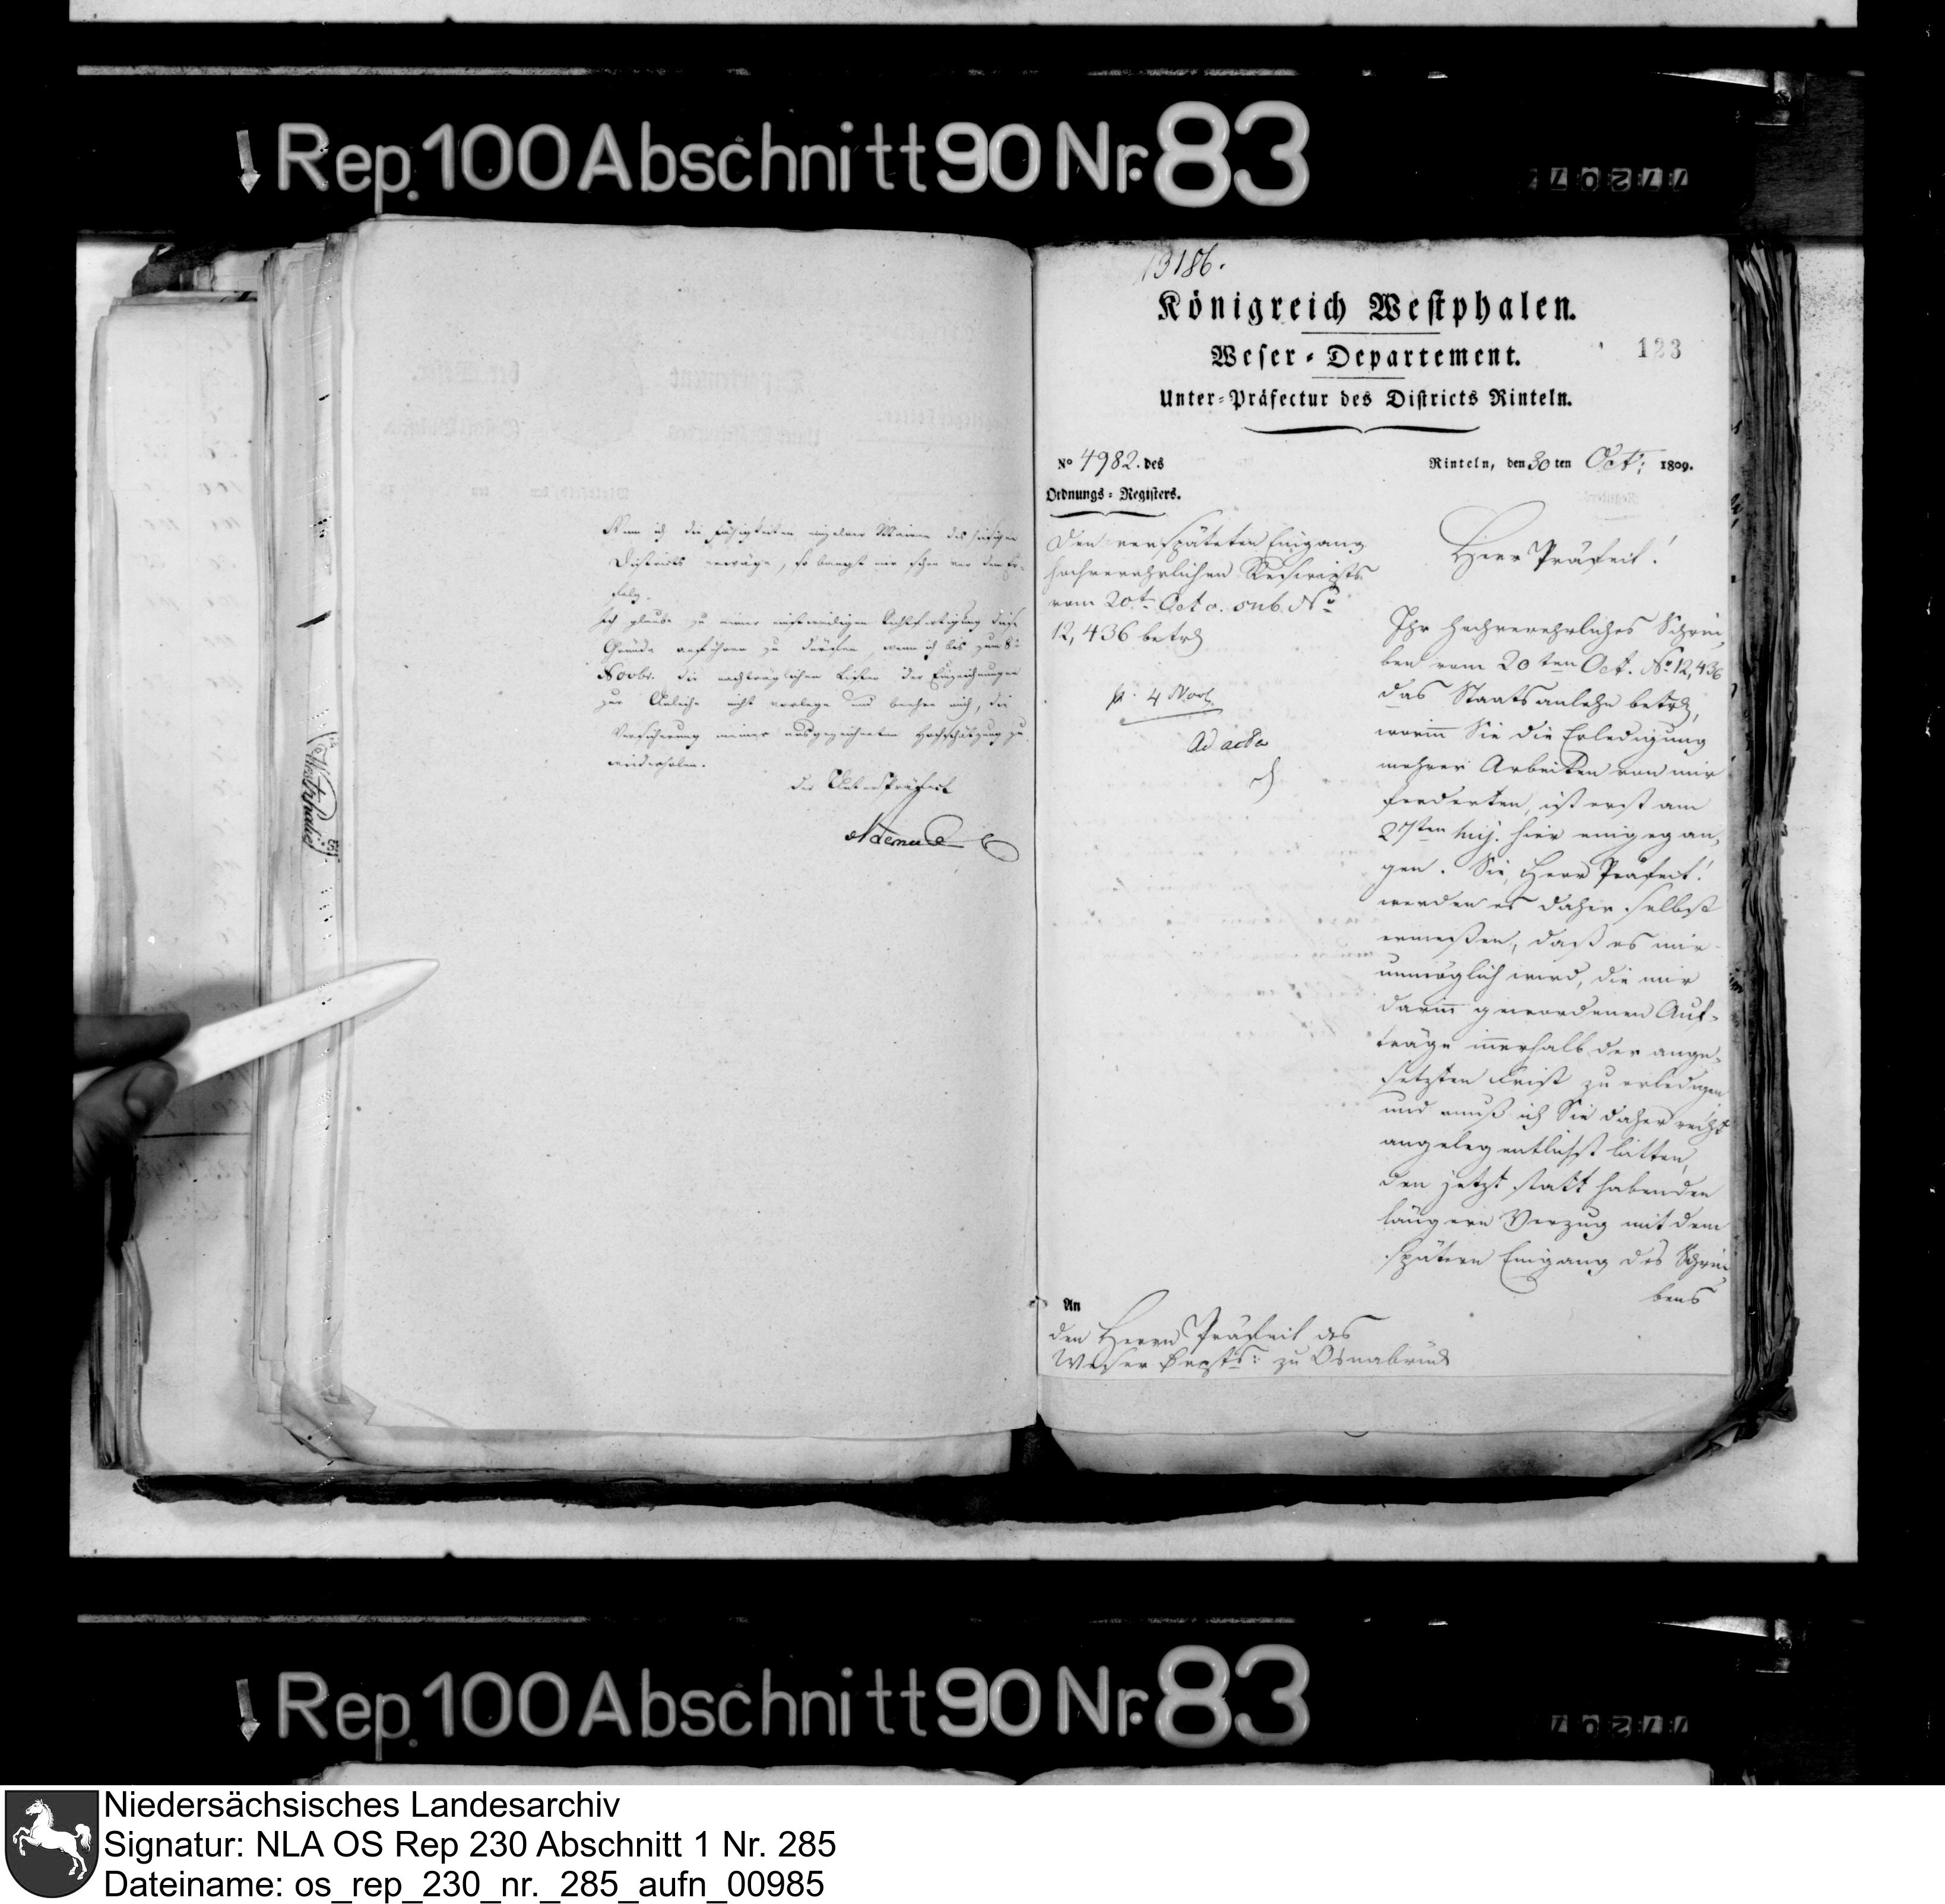 Rep. 100 Abschnitt 90 Nr. 83
Wenn ich die Fähigkeiten einzelner Mairen des hiesigen
Districts erwäge, so bangt mir schon vor dem Er-
folg.
Ich glaube zu einer einstweiligen Rechtfertigung diese
Gründe anführen zu dürfen, wenn ich bis zum 8n
Novbr. die nachträglichen Listen der Einzeichnungen
zur Anleihe nicht vorlege und beehre mich, die
Versicherung meiner ausgezeichneten Hochschätzung zu
wiederholen.
der Unterpräfect
13186.
Königreich Westphalen.
Weser-Departement.
123
Unter-Präfectur des Districts Rinteln.
No 4982. des
Ordnungs-Registers.
Rinteln, den 30 ten Oct: 1809.
Den verspäteten Eingang
hochverehrlichen Rescripts
vom 20ten Oct. sub No
12,436 betrd
pr. 4 Nov.
Ad acta
Herr Präfect!
Ihr hochverehrliches Schrei-
ben vom 20ten Oct. No 12,436
das Staatsanlehn betrd,
worin Sie die Erledigung
mehrer Arbeiten von mir
forderten, ist erst am
27ten huj. hier eingegan-
gen. Sie, Herr Präfect!
werden es daher selbst
ermeßen, daß es mir
unmöglich wird, die mir
darin gewordenen Auf-
träge innerhalb der ange-
setzten Frist zu erledigen
und muß ich Sie daher recht
angelegentlichst bitten,
den jetzt statt habenden
längern Verzug mit dem
spätern Eingang des Schrei-
bens
An
den Herrn Präfect des
Weser Depts: zu Osnabrück
Rep. 100 Abschnitt 90 Nr. 83
Niedersächsisches Landesarchiv
Signatur: NLA OS Rep 230 Abschnitt 1 Nr. 285
Dateiname: os_rep_230_nr._285_aufn_00985